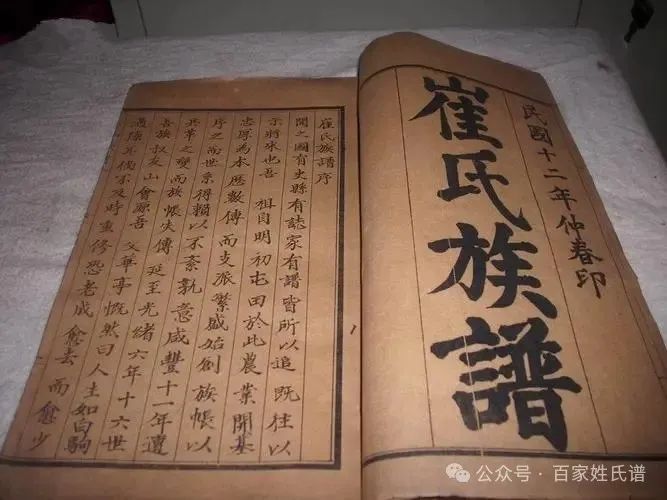 民國十二年仲春印
崔氏族譜
崔氏族譜序
聞之國有史縣有誌家有譜皆所以追既往以
示將來也吾 祖自明初屯田於此農業開基
忠厚為本歷數傳 而支派繁盛始創族帳以
序之而世系得賴以不紊孰意咸豐十一年遭
兵革之變而族帳失傳延至光緒六年十六世
吾族叔友山會源吾 父華亭慨然曰人生如白駒
過隙耳倘不及時重修恐老成愈去而愈少
公众号·百家姓氏谱